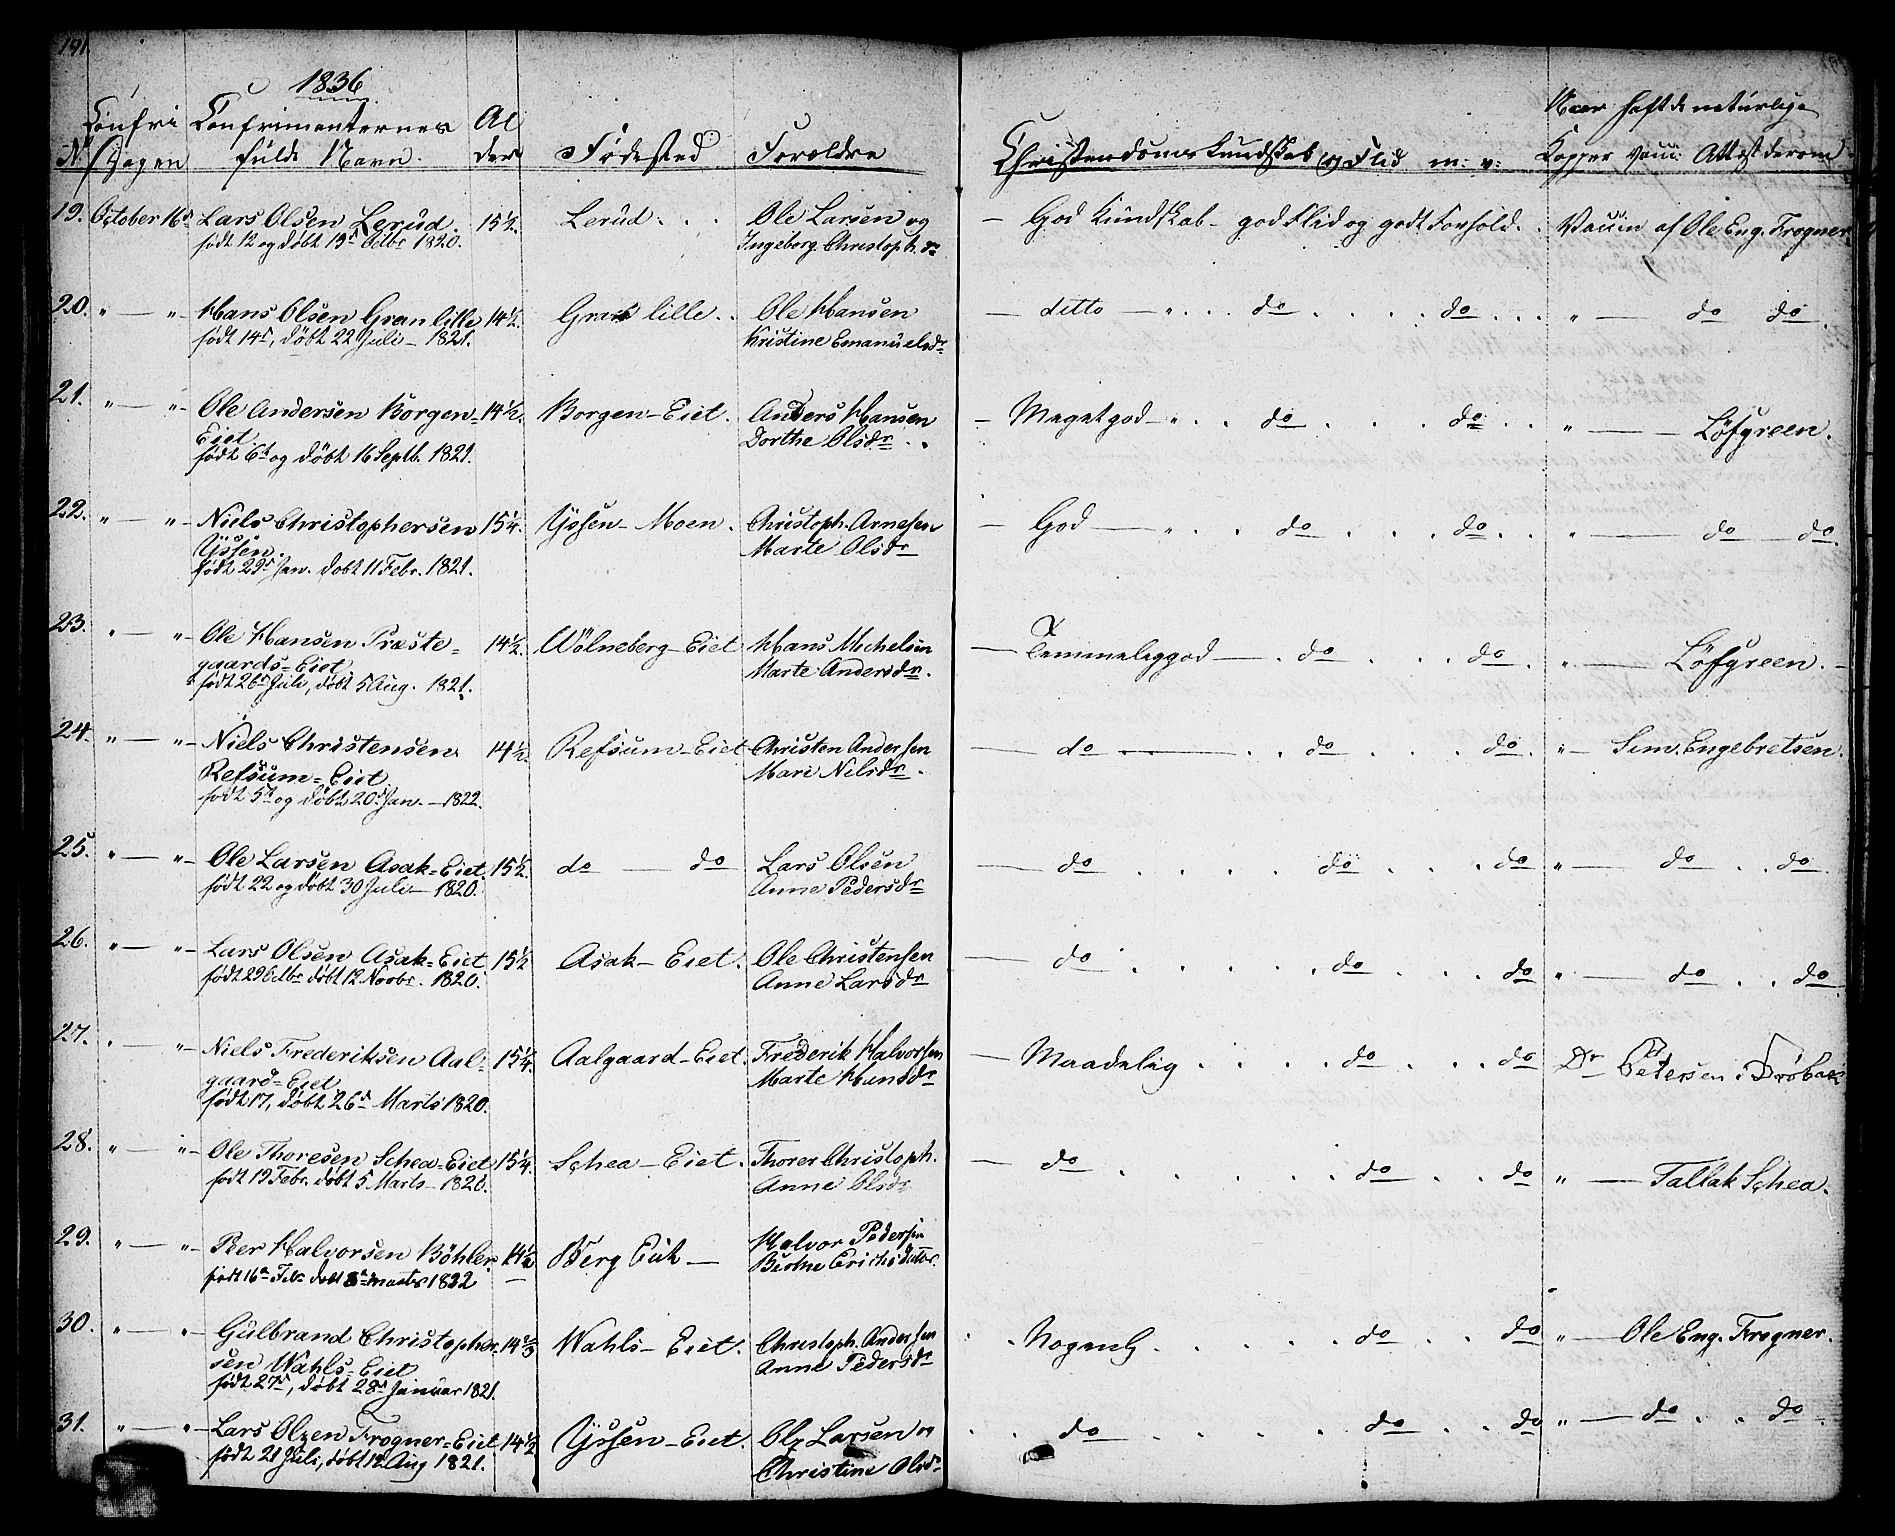 191
1836
Confri Confirmanternes Al Naar haft de naturlige
N. Dagen fulde Navn. der Fødested Foroldre Christendoms Kundskab og Flid m: v: Kopper Vacci: Attest derom
19. October 16de Lars Olsen Lerud. 15½. Lerud. Ole Larsen og — God Kundskab - god Flid og godt Forhold. Vaccin af Ole Eng. Frogner.
født 12 og døbt 19de 1820. Ingeborg Christoph.dr
20. " — " Hans Olsen Gran lille 14½. Gran lille. Ole Hansen — ditto — " . . do . . . . do . . . " — do do.
født 14de, døbt 22 Juli — 1821. Kristine Emanuelsdr
21. " — " Ole Andersen Borgen= 14½. Borgen-Eiet. Anders Hansen — Meget god — " . . do . . . do . . " — Løfgreen.
Eiet Dorthe Olsdr.
født 6te og døbt 16 Septb. 1821.
22. " — " Niels Christophersen 15¼. Ÿssen- Moen. Christoph. Arnesen — God — " . . do . . . do . . " — do do.
Ÿssen. Marte Olsdr
født 29de Jan. døbt 11 Febr. 1821.
23. " — " Ole Hansen Præste= 14½. Wölneberg-Eiet Hans Michelsen — Temmelig god — . do . . . do . " — Løfgreen. -
gaards=Eiet Marte Andersdr.
født 26de Juli, døbt 5 Aug. 1821.
24. " — " Niels Christensen 14½ Refsum-Eiet Christen Andersen — do — . . do . . . do . " — Sim. Engebretsen.
Refsum=Eiet Mari Nilsdr.
født 5te og døbt 20de Jan. — 1822.
25. " — " Ole Larsen Asak=Eiet 15½. do — do Lars Olsen — do . . . . do . . . do " — do . . do.
født 22 og døbt 30 Juli — 1820. Anne Pedersdr
26. " — " Lars Olsen Asak=Eiet 15½ Asak-Eiet. Ole Christensen — do . . . . . do . . . do " — do . . do.
født 29 døbt 12 Novbr. 1820. Anne Larsdr
27. " — " Niels Frederiksen Aal= 15¼. Aalgaard-Eiet. Frederik Halvorsen — Maadelig . . . . do . . . do Dr Petersen i Drøbak
gaard=Eiet Marte Hansdr
født 17, døbt 26de Marts 1820.
28. " — " Ole Thoresen Schea=Eiet 15¼. Schea-Eiet. Thorer Christoph. — do . . . . . do . . do " — Tallak Schea.
født 19 Febr. døbt 5 Marts — 1820. Anne Olsdr
29. " — " Peer Halvorsen Bøhler. 14½ Berg Eiet — Halvor Pedersen
født 16de Feb. døbt marts 1822 Birthe Erichsdatter.
30. " — " Gulbrand Christopher= 14⅔ Wahls-Eiet. Christoph. Andersen . . . . . do . . do " — Ole Eng. Frogner.
sen Wahls=Eiet Anne Pedersdr
født 27de, døbt 28de Januar 1821.
31. " — " Lars Olzen Frogner=Eiet 14½ Ÿssen-Eiet. Ole Larsen og . . do . . . . . do . . do " — do . . do.
født 21 Juli, døbt 12 Aug 1821. Christine Olsdr